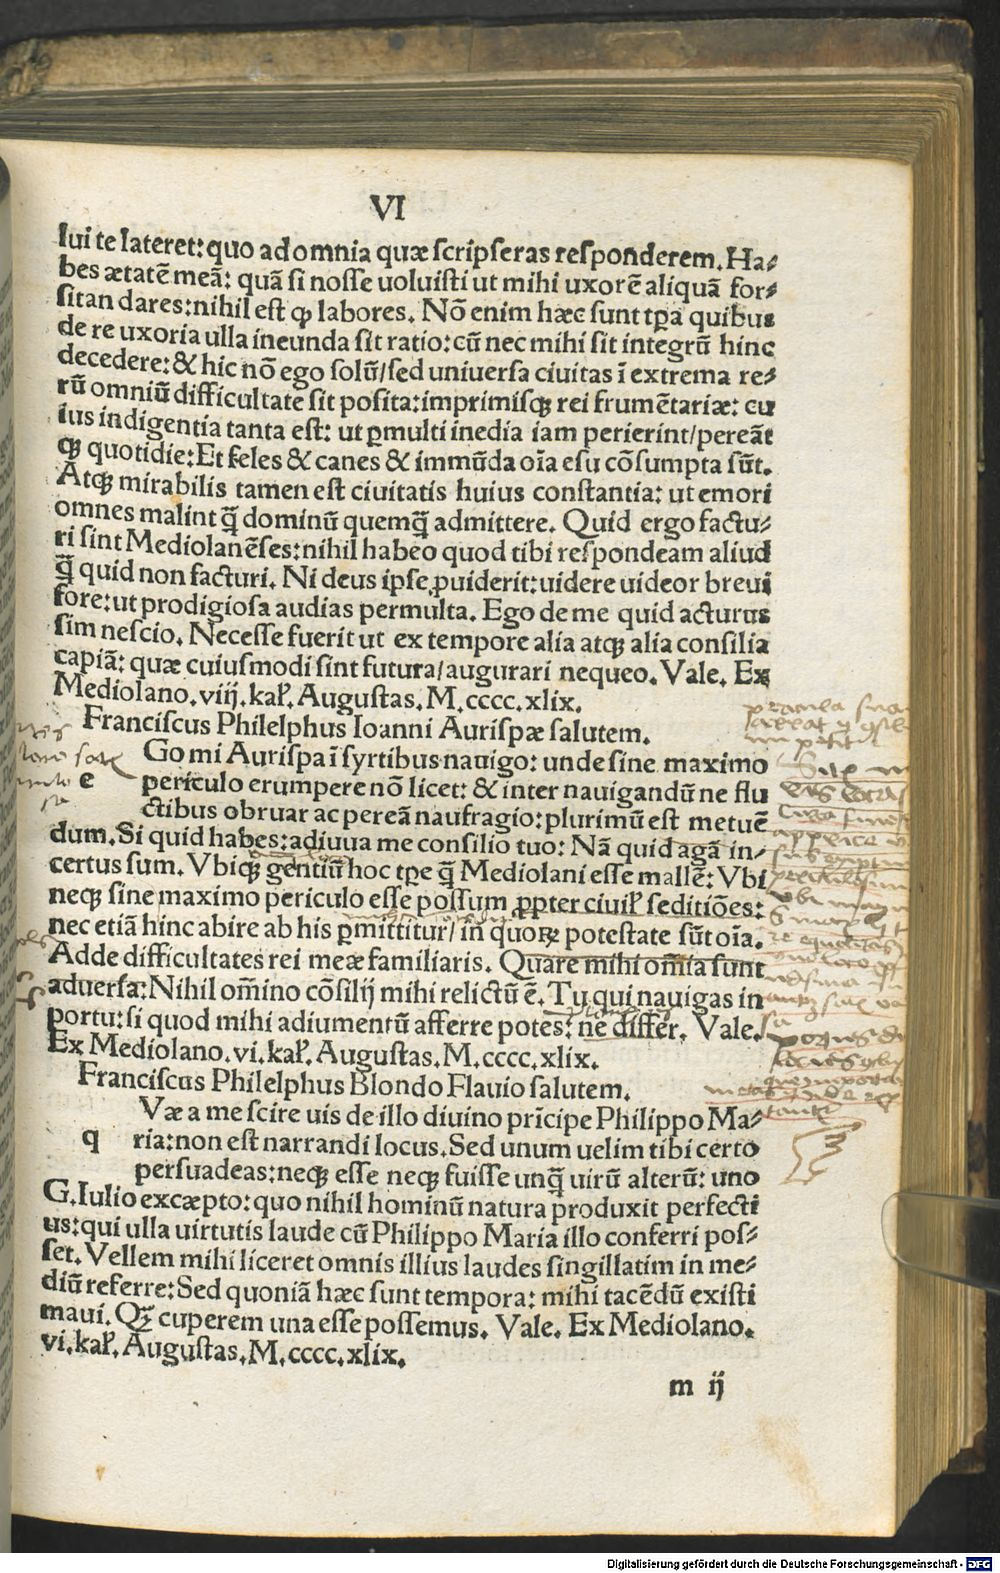 VI
lui te lateret: quo ad omnia quæ scripseras responderem. Ha-
bes ætatē meā: quā si nosse uoluisti ut mihi uxorē aliquā for-
sitan dares: nihil est ꝙ labores. Nō enim hæc sunt tp̄a quibus
de re uxoria ulla ineunda sit ratio: cū nec mihi sit integrū hinc
decedere: & hic nō ego solū/sed uniuersa ciuitas ī extrema re-
rū omniū difficultate sit posita: imprimisqꝫ rei frumētariæ: cu
ius indigentia tanta est: ut ꝑmulti inedia iam perierint/pereāt
qꝫ quotidie: Et feles & canes & immūda oīa esu cōsumpta sūt.
Atqꝫ mirabilis tamen est ciuitatis huius constantia: ut emori
omnes malint q̄ dominū quemq̄ admittere. Quid ergo factu-
ri sint Mediolanēses: nihil habeo quod tibi respondeam aliud
q̄ quid non facturi. Ni deus ipse ꝓuiderit: uidere uideor breui
fore: ut prodigiosa audias permulta. Ego de me quid acturus
sim nescio. Necesse fuerit ut ex tempore alia atqꝫ alia consilia
capiā: quæ cuiusmodi sint futura/augurari nequeo. Vale. Ex
Mediolano. viij. kal. Augustas. M. cccc. xlix.
Franciscus Philelphus Ioanni Aurispæ salutem.
Go mi Aurispa ī syrtibus nauigo: unde sine maximo
e periculo erumpere nō licet: & inter nauigandū ne flu
ctibus obruar ac pereā naufragio: plurimū est metuē
dum. Si quid habes: adiuua me consilio tuo: Nā quid agā in-
certus sum. Vbiqꝫ gentiū hoc tp̄e q̄ Mediolani esse mallē: Vbi
neqꝫ sine maximo periculo esse possum ꝓpter ciuil seditiōes:
nec etiā hinc abire ab his ꝑmittitur/in quoꝝ potestate sūt oīa.
Adde difficultates rei meæ familiaris. Quare mihi om̄ia sunt
aduersa: Nihil om̄ino cōsilij mihi relictū ē. Tu qui nauigas in
portu: si quod mihi adiumentū afferre potes: ne differ. Vale.
Ex Mediolano. vi. kal. Augustas. M. cccc. xlix.
Franciscus Philelphus Blondo Flauio salutem.
Væ a me scire uis de illo diuino prīcipe Philippo Ma-
q ria: non est narrandi locus. Sed unum uelim tibi certo
persuadeas: neqꝫ esse neqꝫ fuisse unq̄ uirū alterū: uno
G. Iulio excæpto: quo nihil hominū natura produxit perfecti
us: qui ulla uirtutis laude cū Philippo Maria illo conferri pos-
set. Vellem mihi liceret omnis illius laudes singillatim in me-
diū referre: Sed quoniā hæc sunt tempora: mihi tacēdū existi
maui. Qꝫ cuperem una esse possemus. Vale. Ex Mediolano.
vi. kal. Augustas. M. cccc. xlix.
m ij
Digitalisierung gefördert durch die Deutsche Forschungsgemeinschaft - DFG